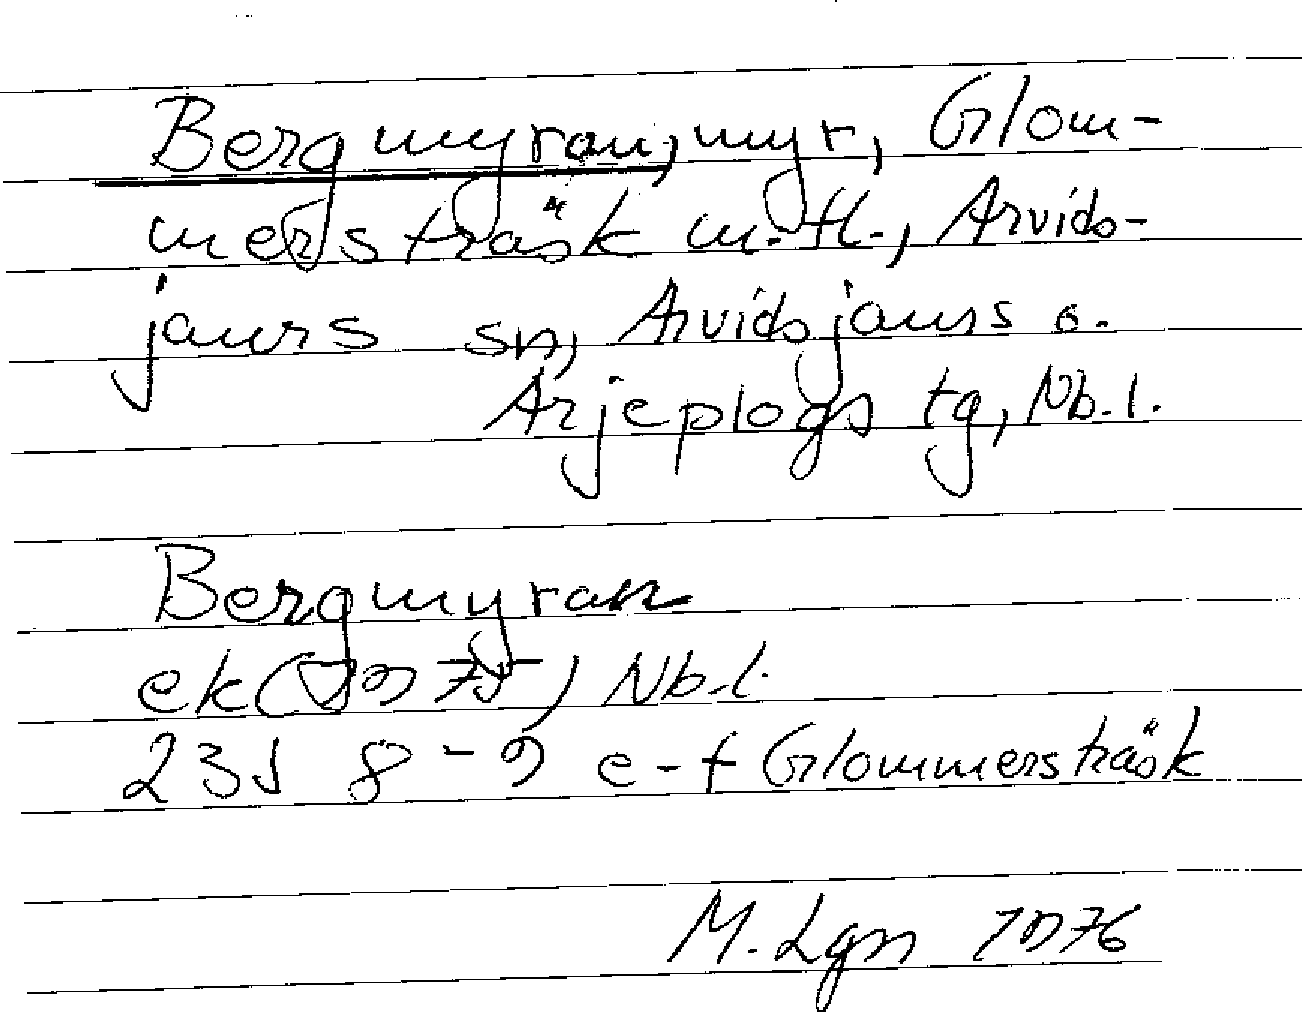 Bergmyran, myr, Glom-
mersträsk m.fl., Arvids-
jaurs sn, Arvidsjaurs o.
Arjeplogs tg, Nb.l.
Bergmyran
ek (1975) Nb.l.
23J 8-9 e-f Glommersträsk
M. Lgn 1976